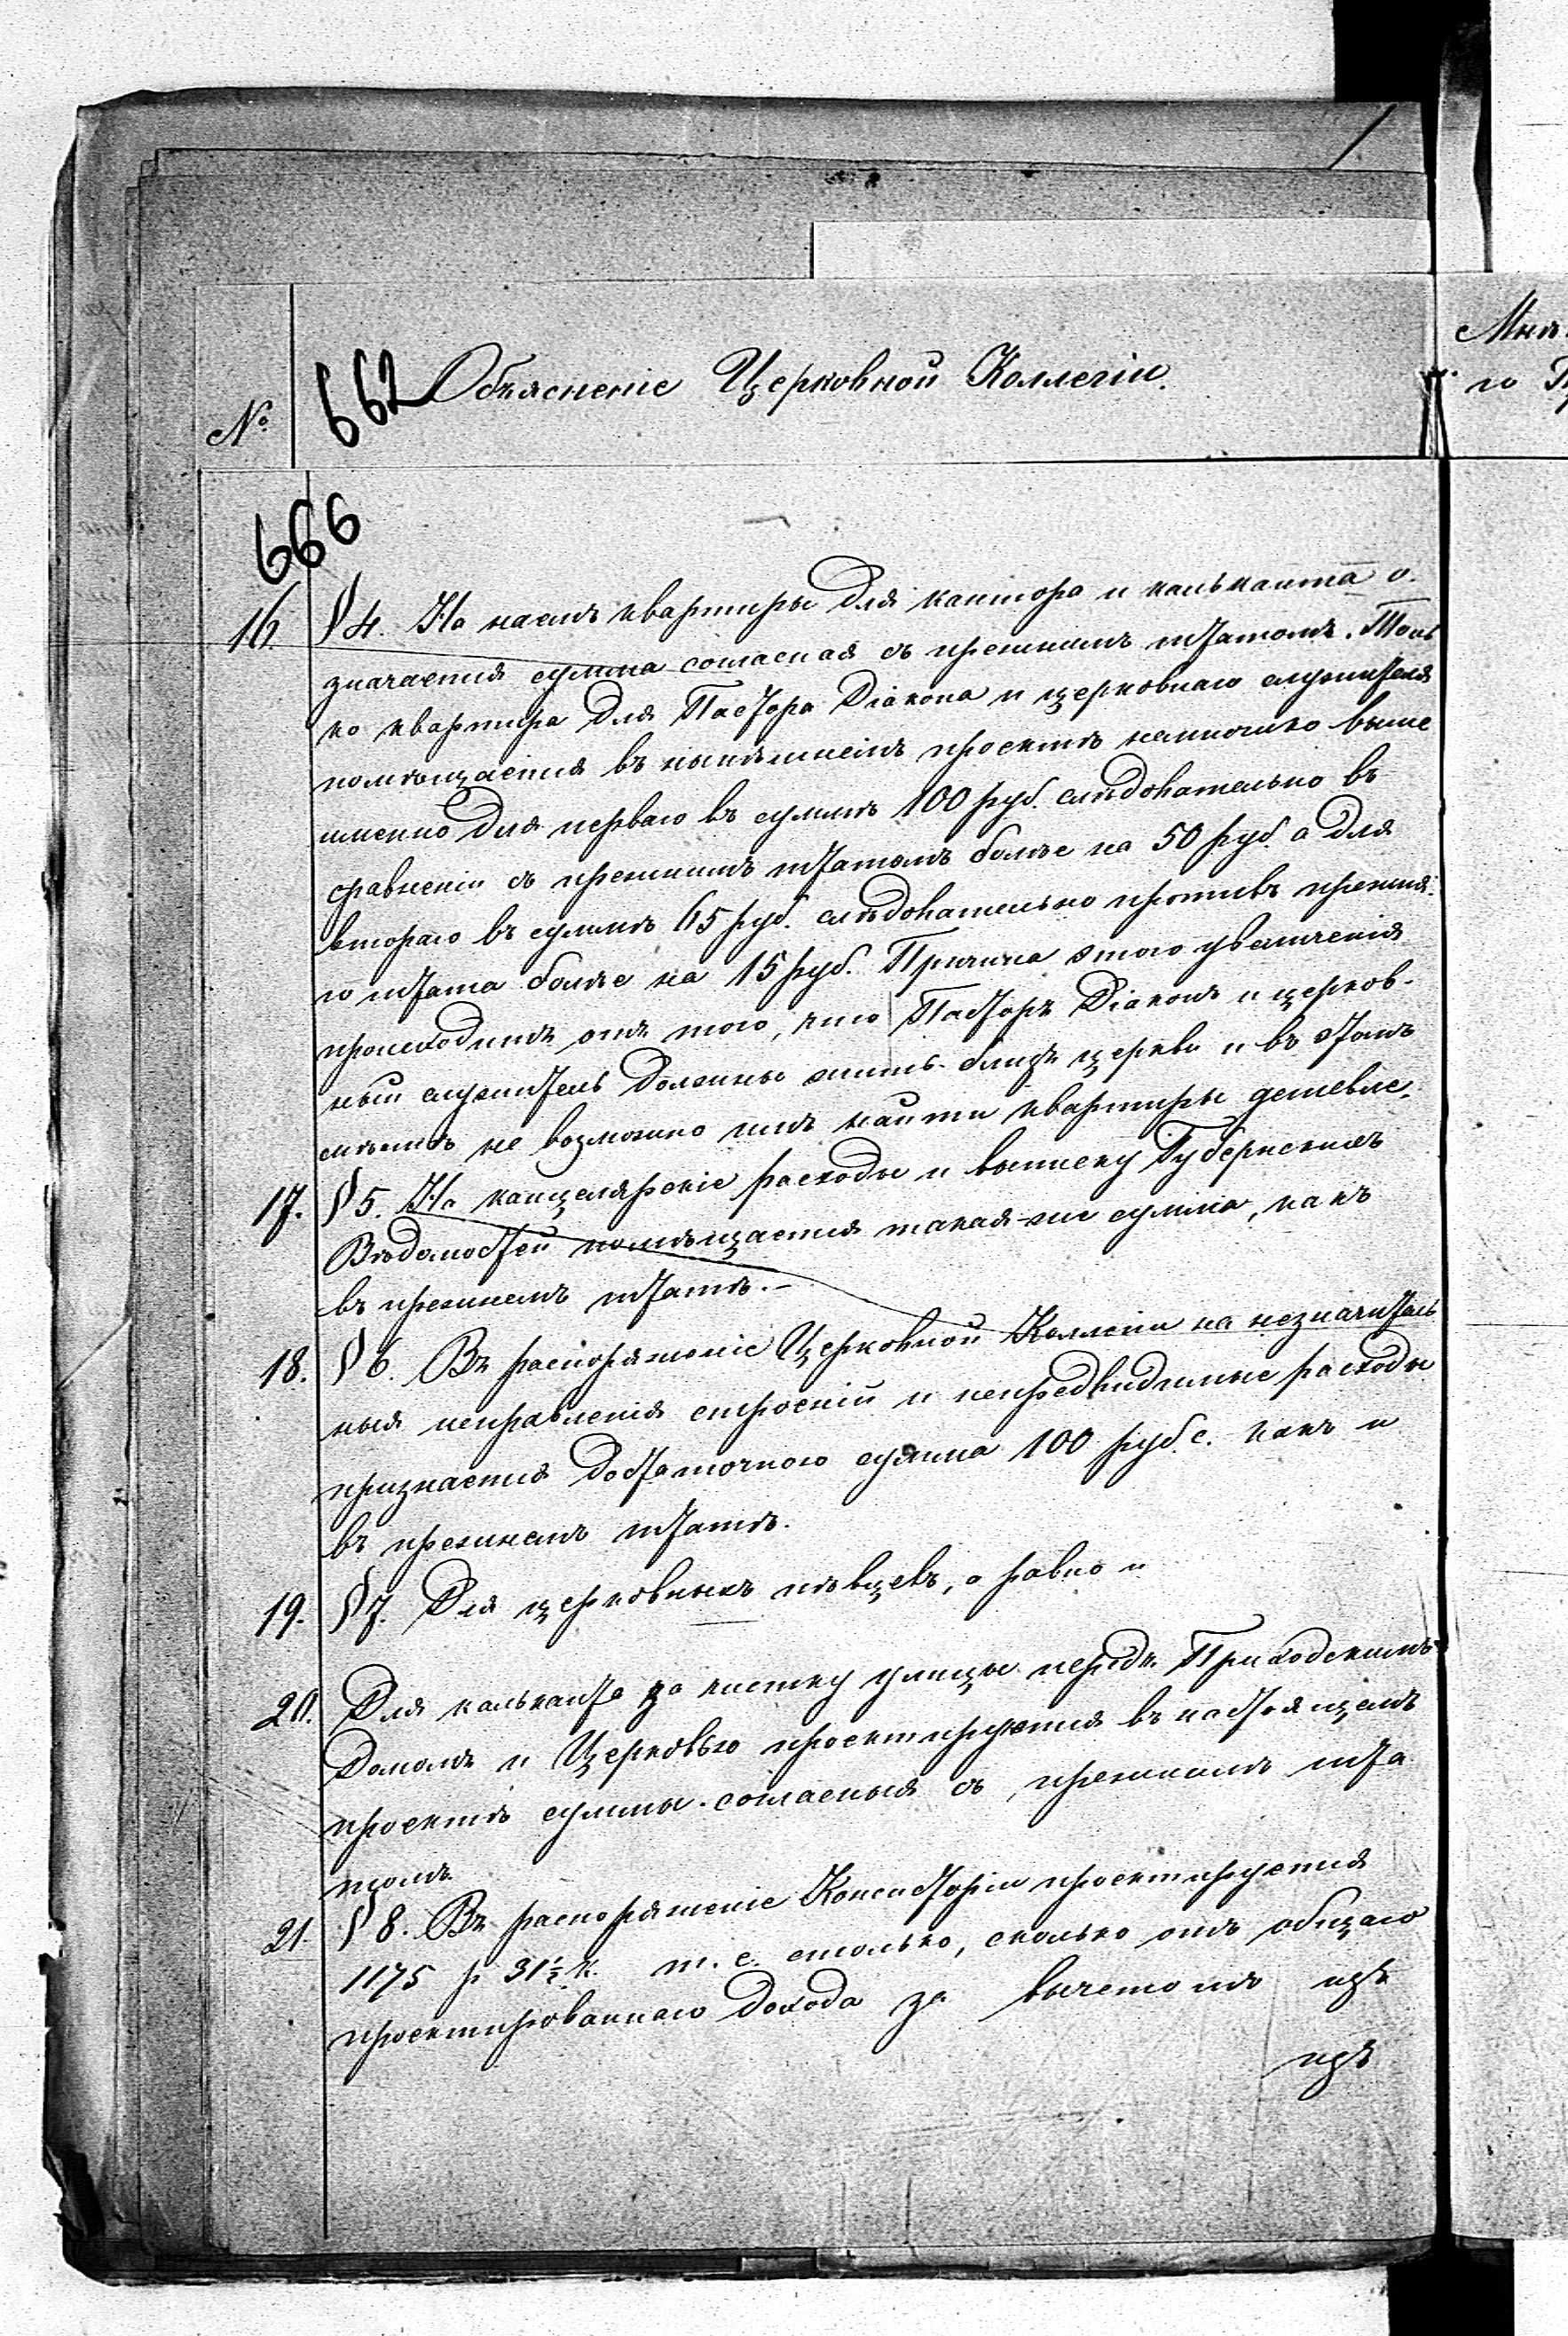 Мнѣ
го
№
662 Объясненіе Церковной Коллегіи.
666
16. § 4. На наемъ квартиры для кантора и кальканта о-
значается сумма согласная съ прежнимъ штатомъ. Толь
ко квартира для Пастора Діакона и церковнаго служителя
помѣщается въ нынѣшнемъ проектѣ немножко выше
именно для перваго въ суммѣ 100 руб. слѣдовательно въ
сравненіи съ прежнимъ штатомъ болѣе на 50 руб. а для
втораго въ суммѣ 65 руб. слѣдовательно противъ прежня-
го штата болѣе на 15 руб. Причина этого увеличенія
происходитъ отъ того, что Пасторъ Діаконъ и церков-
ный служитель должны жить близъ церкви и въ этомъ
мѣстѣ не возможно имъ найти квартиры дешевле.
17. § 5. На канцелярскіе расходы и выписку Губернскихъ
Вѣдомостей помѣщается такая-же сумма, какъ
въ прежнемъ штатѣ.-
18. § 6. Въ распоряженіе Церковной Коллегіи на незначитель
ныя исправленія строеній и непредвидимые расходы
признается достаточною сумма 100 руб. с. какъ и
въ прежнемъ штатѣ.
19. § 7. Для церковныхъ пѣвцевъ, а равно и
20. Для кальканта за чистку улицы передъ Приходскимъ
Домомъ и Церковью проектируются въ настоящемъ
проектѣ суммы согласныя съ прежнимъ шта
томъ.
21. § 8. Въ распоряженіе Консисторіи проектируется
1175 р 31½ к. т. е. столько, сколько отъ общаго
проектированнаго дохода за вычетомъ изъ
изъ